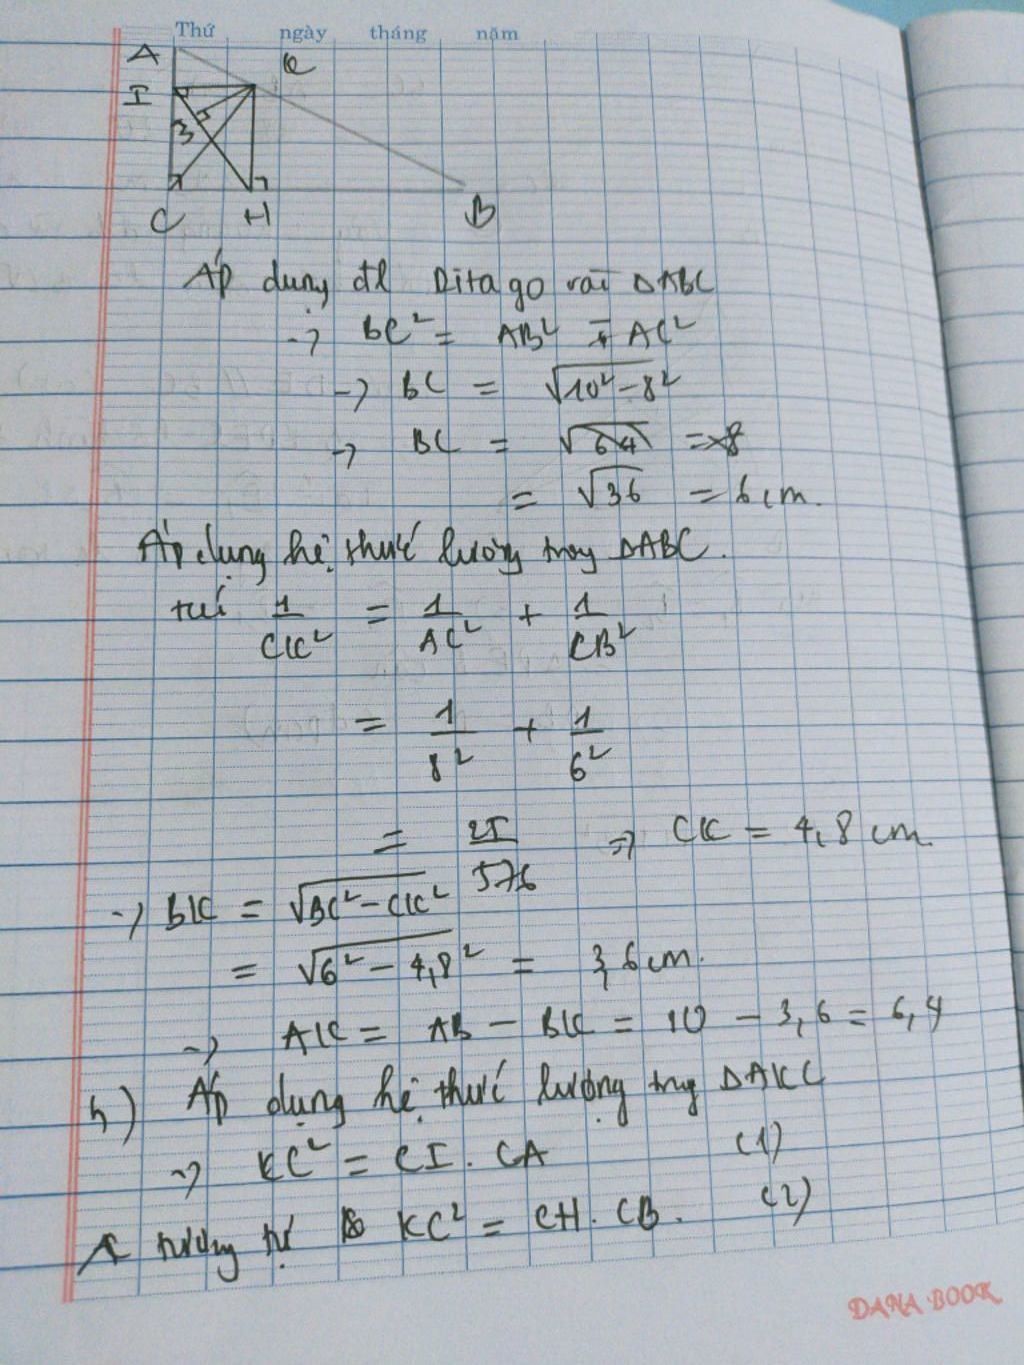 Thứ ngày tháng năm
A K
I
3
C H B
Áp dụng đl Pitago với ΔABC
→ BC² = AB² + AC²
→ BC = √10² - 8²
→ BC = √64 = 8
= √36 = 6 cm.
Áp dụng hệ thức lượng trong ΔABC.
1/CK² = 1/AC² + 1/CB²
= 1/8² + 1/6²
= 25/576 ⇒ CK = 4,8 cm.
→ BK = √BC² - CK²
= √6² - 4,8² = 3,6 cm.
→ AK = AB - BK = 10 - 3,6 = 6,4
b) Áp dụng hệ thức lượng trong ΔAKC
→ KC² = CI . CA (1)
tương tự KC² = CH . CB. (2)
DANA BOOK